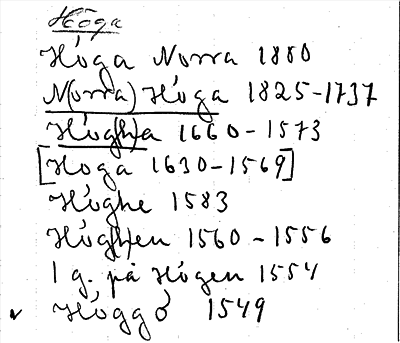 Höga
Höga Norra 1880
N(orra) Höga 1825-1737
Hög(h)a 1660-1573
[Hoga 1630-1569]
Höghe 1583
Hög(h)en 1560-1556
1 g. på Högen 1554
v Höggö 1549